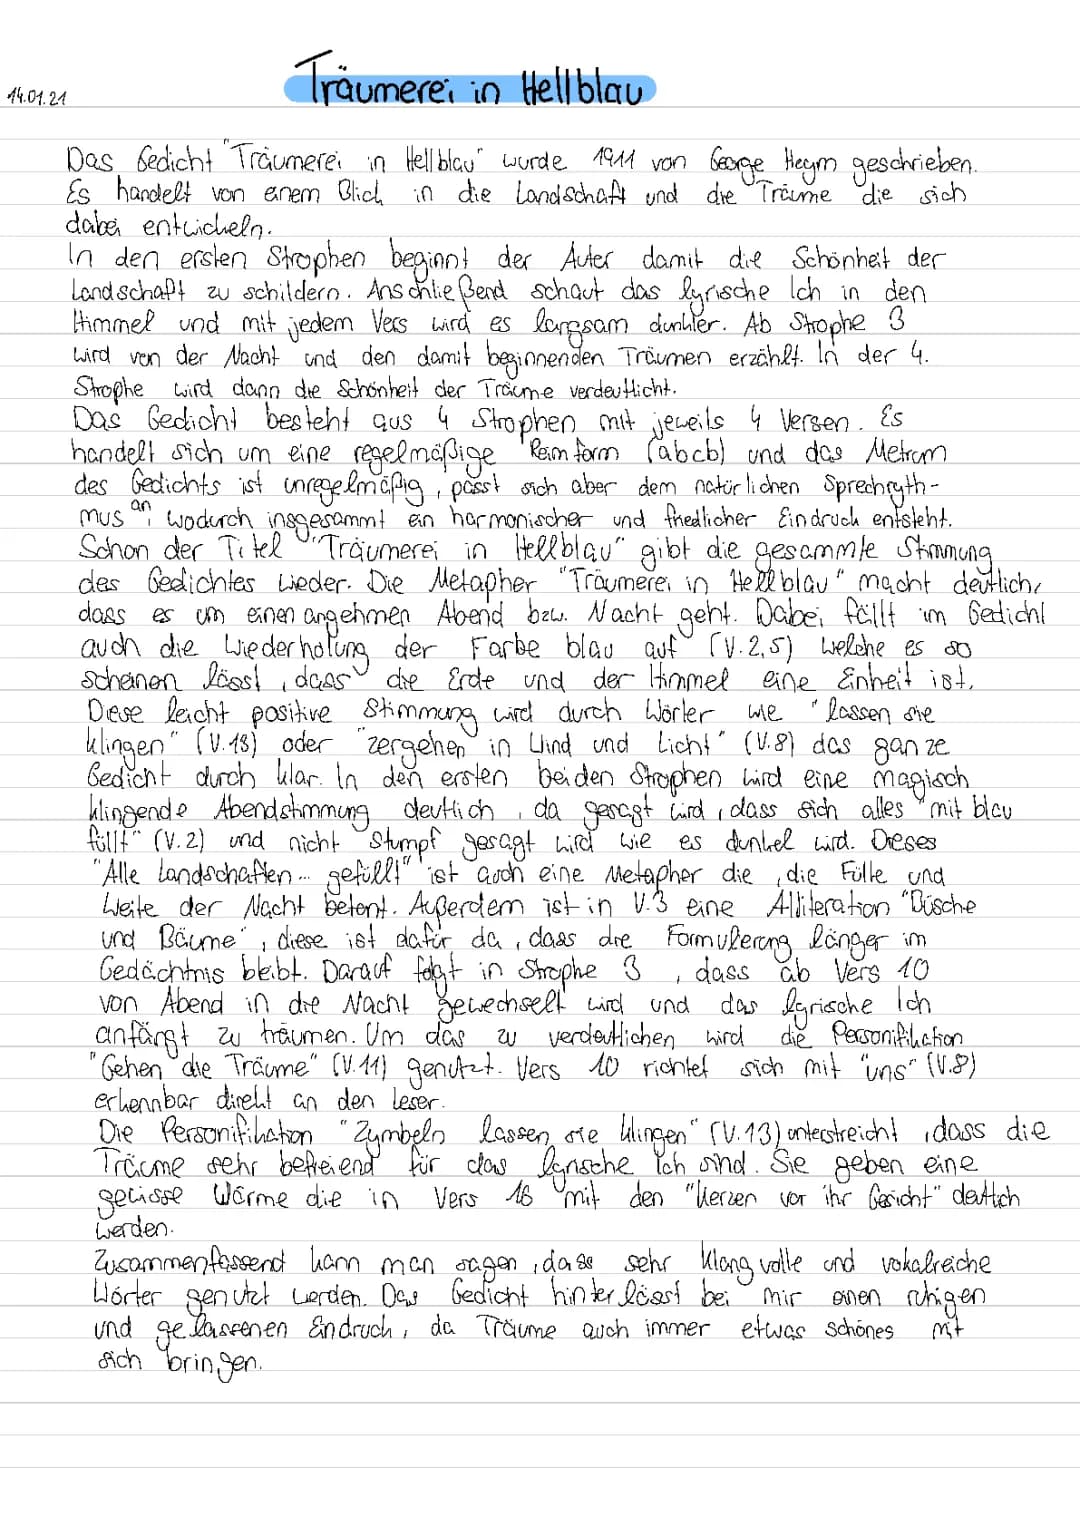 14.01.21
Träumerei in Hellblau
Das Gedicht "Träumerei in Hellblau" wurde 1911 von George Heym geschrieben.
Es handelt von einem Blick in die Landschaft und die Träume die sich
dabei entwickeln.
In den ersten Strophen beginnt der Auter damit die Schönheit der
Landschaft zu schildern. Anschließend schaut das lyrische Ich in den
Himmel und mit jedem Vers wird es langsam dunkler. Ab Strophe 3
wird von der Nacht und den damit beginnenden Träumen erzählt. In der 4.
Strophe wird dann die Schönheit der Träume verdeutlicht.
Das Gedicht besteht aus 4 Strophen mit jeweils 4 Versen. Es
handelt sich um eine regelmäßige Reimform (abcb) und das Metrum
des Gedichts ist unregelmäßig, passt sich aber dem natürlichen Sprechryth-
mus an, wodurch insgesammt ein harmonischer und friedlicher Eindruck entsteht.
Schon der Titel "Träumerei in Hellblau" gibt die gesammte Stimmung
des Gedichtes wieder. Die Metapher "Träumerei in Hellblau" macht deutlich,
dass es um einen angehmen Abend bzw. Nacht geht. Dabei fällt im Gedicht
auch die Wiederholung der Farbe blau auf (V.2,5) welche es so
scheinen lässt, dass die Erde und der Himmel eine Einheit ist.
Diese leicht positive Stimmung wird durch Wörter wie "lassen sie
klingen" (V.13) oder "zergehen in Wind und Licht" (V.8) das ganze
Gedicht durch klar. In den ersten beiden Strophen wird eine magisch
klingende Abendstimmung deutlich, da gesagt wird, dass sich alles "mit blau
füllt" (V.2) und nicht Stumpf gesagt wird wie es dunkel wird. Dieses
"Alle Landschaften ... gefüllt" ist auch eine Metapher die, die Fülle und
Weite der Nacht betont. Außerdem ist in V.3 eine Alliteration "Büsche
und Bäume", diese ist dafür da, dass die Formulierung länger im
Gedächtnis bleibt. Darauf folgt in Strophe 3, dass ab Vers 10
von Abend in die Nacht gewechselt wird und das lyrische Ich
anfängt zu träumen. Um das zu verdeutlichen wird die Personifikation
"Gehen die Träume" (V.11) genutzt. Vers 10 richtet sich mit "uns" (V.8)
erkennbar direkt an den Leser.
Die Personifikation "Zymbeln lassen sie klingen" (V.13) unterstreicht, dass die
Träume sehr befreiend für das lyrische Ich sind. Sie geben eine
gewisse Wärme die in Vers 16 mit den "Kerzen vor ihr Gesicht" deutlich
werden.
Zusammenfassend kann man sagen, dass sehr klangvolle und vokalreiche
Wörter genutzt werden. Das Gedicht hinterlässt bei mir einen ruhigen
und gelassenen Eindruck, da Träume auch immer etwas schönes mit
sich bringen.